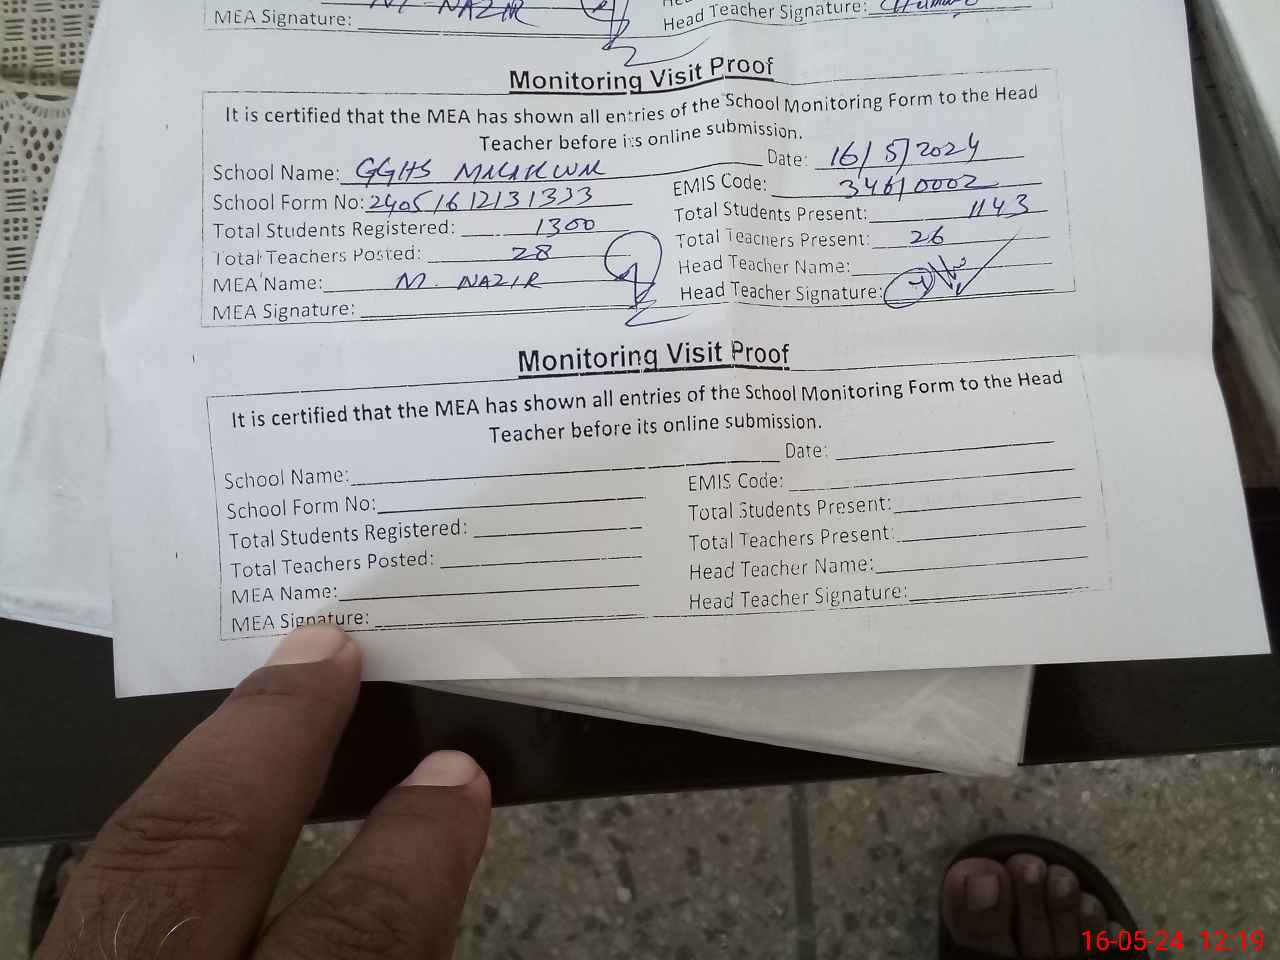 M. NAZIR
MEA Signature:
Head Teacher Signature:
Monitoring Visit Proof
It is certified that the MEA has shown all entries of the School Monitoring Form to the Head
Teacher before its online submission.
School Name: GGHS MALAKWAL Date: 16/5/2024
School Form No: 24051612131333 EMIS Code: 34610002
Total Students Registered: 1300 Total Students Present: 1143
Total Teachers Posted: 28 Total Teachers Present: 26
MEA Name: M. NAZIR Head Teacher Name:
MEA Signature: Head Teacher Signature:
Monitoring Visit Proof
It is certified that the MEA has shown all entries of the School Monitoring Form to the Head
Teacher before its online submission.
School Name: Date:
School Form No: EMIS Code:
Total Students Registered: Total Students Present:
Total Teachers Posted: Total Teachers Present:
MEA Name: Head Teacher Name:
MEA Signature: Head Teacher Signature:
16-05-24 12:19